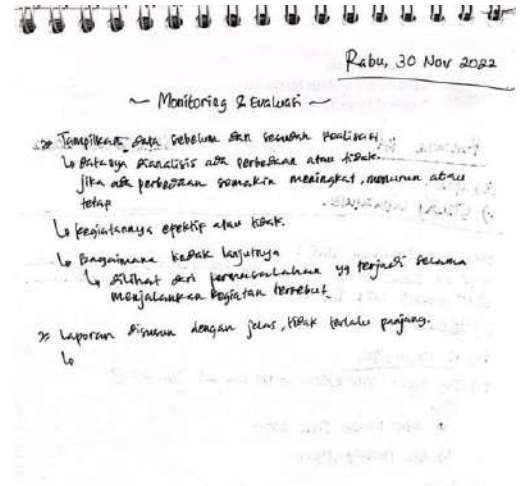 Rabu, 30 Nov 2022
~ Monitoring & Evaluasi ~
Tampilkan data sebelum dan sesudah realisasi
↳ Datanya dianalisis ada perbedaan atau tidak.
jika ada perbedaan semakin meningkat, menurun atau
tetap
↳ kegiatannya efektif atau tidak.
↳ Bagaimana lanjutnya
↳ dilihat dari permasalahan yg terjadi selama
menjalankan kegiatan tersebut
Laporan disusun dengan jelas, tidak terlalu panjang.
↳